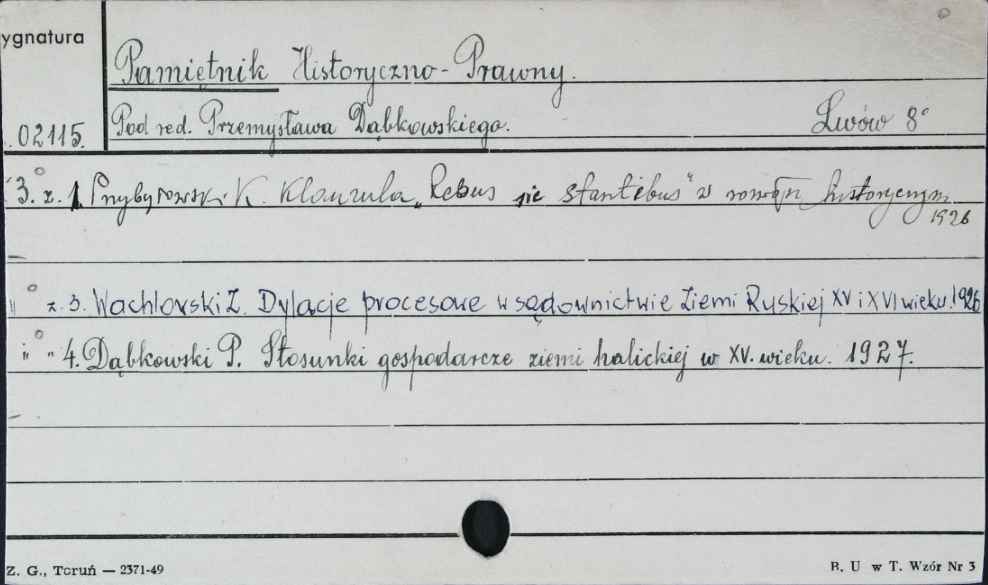 ygnatura
Pamiętnik Historyczno-Prawny.
02115. Pod red. Przemysława Dąbkowskiego. Lwów 8°
3. z. 1 Przybyłowski K. Klauzula „Rebus sic stantibus" w historycznym
1926
" z. 3. Wachlovski Z. Dylacje procesowe w sądownictwie Ziemi Ruskiej XV i XVI wieku. 1926
" " 4. Dąbkowski P. Stosunki gospodarcze ziemi halickiej w XV. wieku. 1927.
Z. G., Toruń — 2371-49
B. U w T. Wzór Nr 3